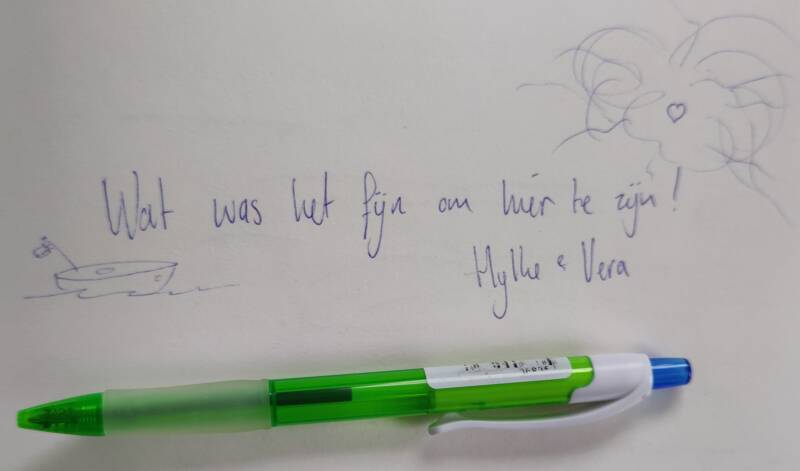 Wat was het fijn om hier te zijn!
Hylke & Vera